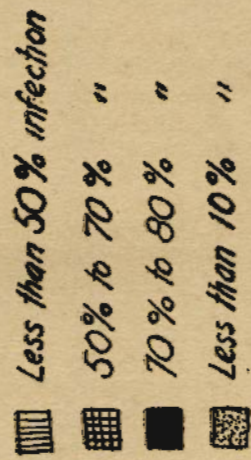 Less than 50% infection
50% to 70% "
70% to 80% "
Less than 10% "